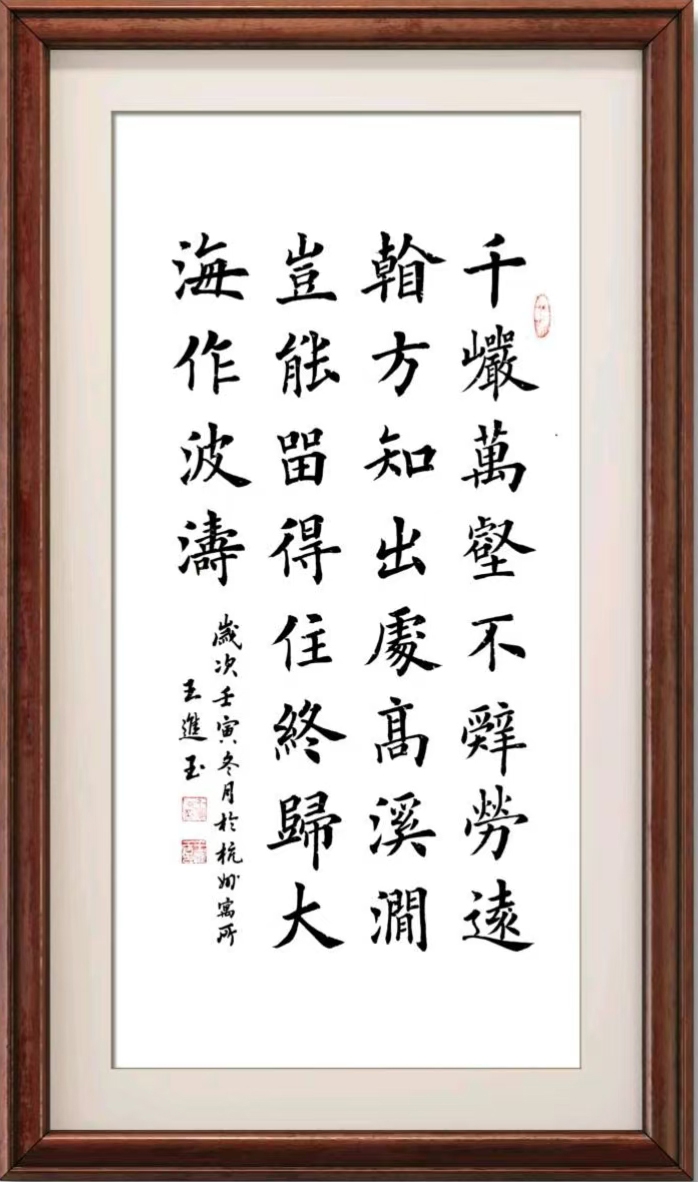 千巖萬壑不辭勞遠
看方知出處髙溪澗
豈能留得住終歸大
海作波濤
歲次壬寅冬月於杭州寓所
王進玉